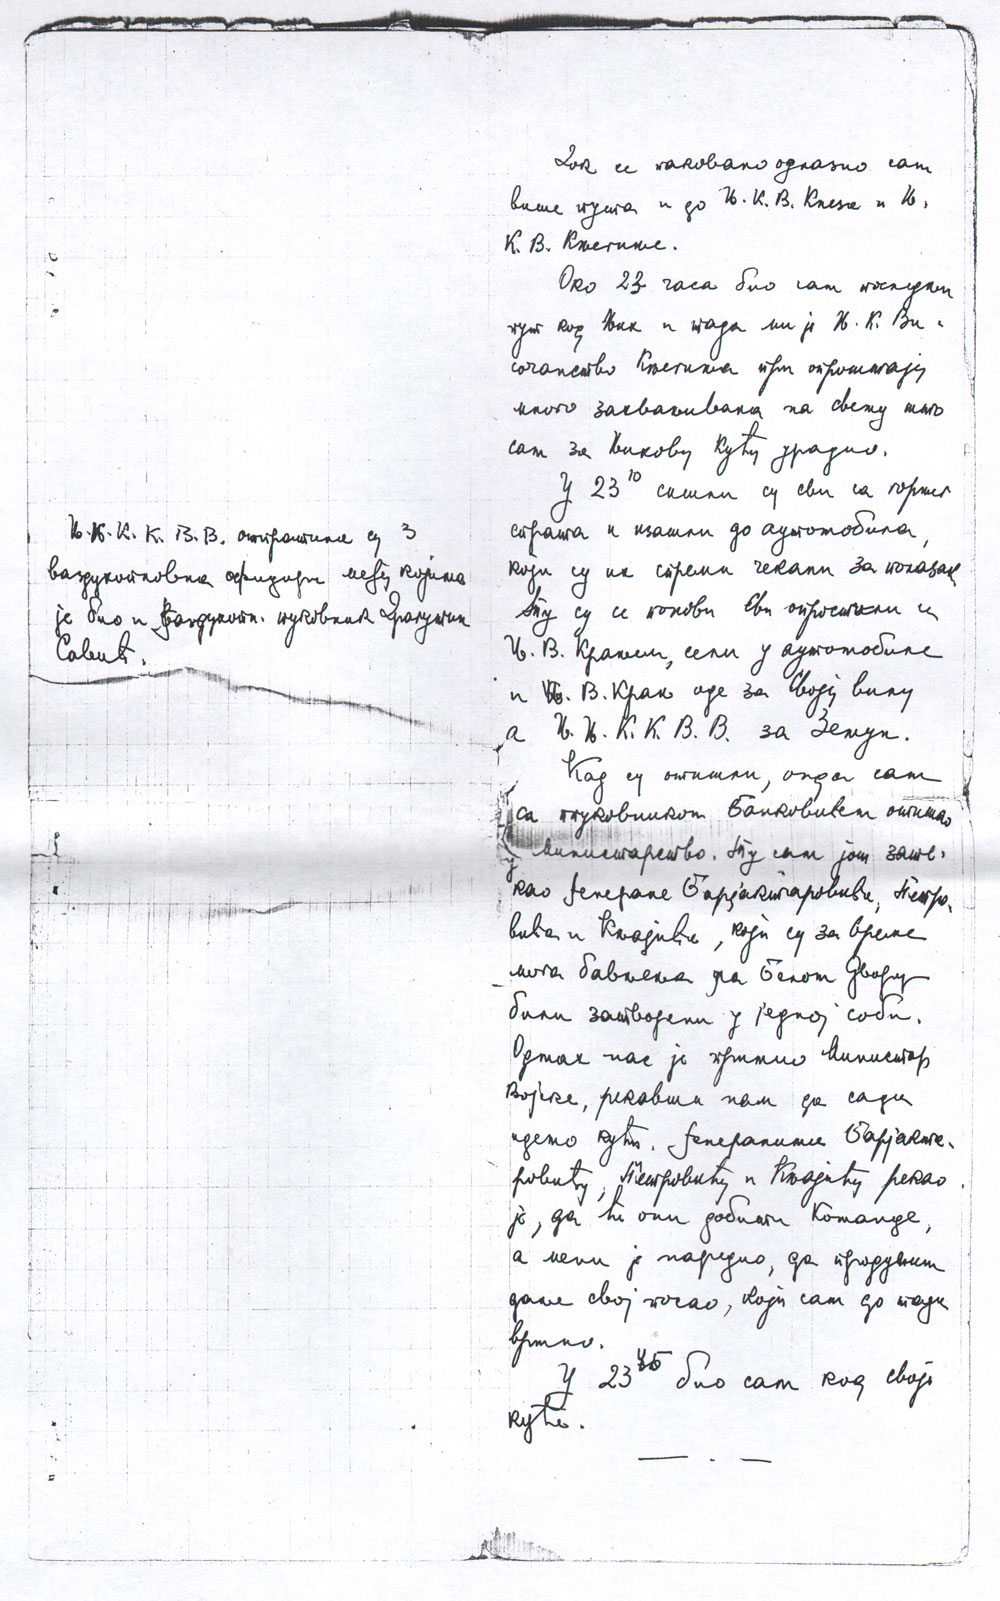 Њ.Њ.К. К. В.В. отпратила су 3
ваздухопловна официра међу којима
је био и ваздухопл. пуковник Драгутин
Савић.
Док се паковано одлазио сам
више пута и до Њ.К.В. Кнеза и Њ.
К.В. Кнегиње.
Око 23 часа био сам последњи
пут код Њих и тада ми је Њ.К. Ви-
сочанство Кнегиња при опроштају
много захваљивала на свему што
сам за Њихову Кућу урадио.
У 23 10 сишли су сви са горњег
спрата и изашли до аутомобила,
који су их спремни чекали за полазак
Ту су се понова сви опростили са
Њ. В. Краљем, сели у аутомобиле
и Њ. В. Краљ оде за своју вилу
а Њ. Њ. К. К. В. В. за Земун.
Кад су отишли, онда сам
са пуковником Банковићем отишао
у Министарство. Ту сам још зате-
као генерале Барјактаровића, Петро-
вића и Књајића, који су за време
мога бављења на Белом Двору
били затворени у једној соби.
Одмах нас је примио Министар
Војске, рекавши нам да сада
идемо кући. Генералима Барјакта-
ровићу, Петровићу и Књајићу рекао
је, да ће они добити Команде,
а мени је наредио, да продужим
даље свој посао, који сам до тада
вршио.
У 23 45 био сам код своје
куће.